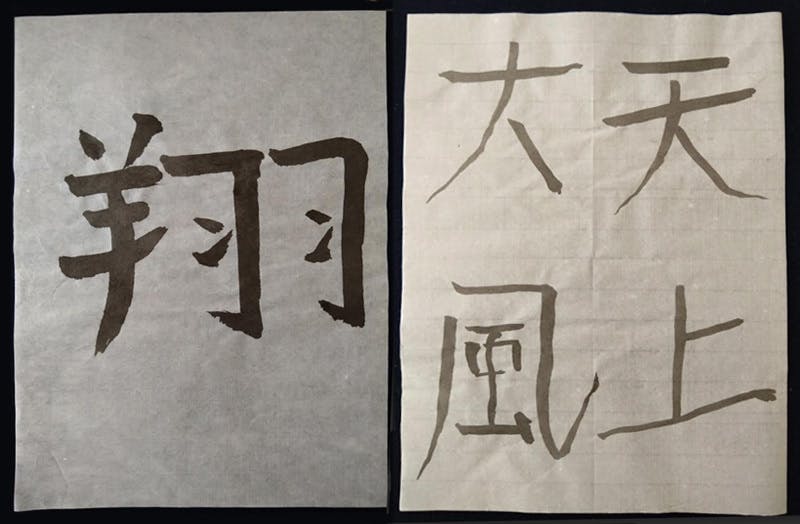 翔
天上
大風